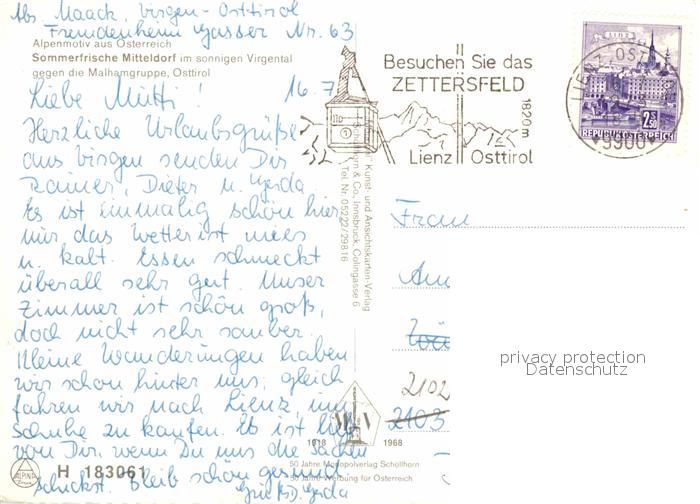 Abs. Maack, Virgen-Osttirol
Fremdenheim Gasser Nr. 63
Alpenmotiv aus Österreich
Sommerfrische Mitteldorf im sonnigen Virgental
gegen die Malhamgruppe, Osttirol
Liebe Mutti! 16.7.
Herzliche Urlaubsgrüße
aus Virgen senden Dir
Rainer, Dieter u. Gerda
Es ist einmalig schön hier,
nur das Wetter ist mies
u. kalt. Essen schmeckt
überall sehr gut. Unser
Zimmer ist schön groß,
doch nicht sehr sauber.
Kleine Wanderungen haben
wir schon hinter uns, gleich
fahren wir nach Lienz, um
Schuhe zu kaufen. Es ist lieb
von Dir, wenn Du uns die Sachen
schickst. Bleib schön gesund
Gruß D. Gerda
ALPINA
H 183061
Kunst- und Ansichtskarten-Verlag
& Co., Innsbruck, Colingasse 6
Tel. Nr. 05222/29816
1918 1968
50 Jahre Monopolverlag Schöllhorn
50 Jahre Werbung für Österreich
Besuchen Sie das
ZETTERSFELD
1820 m
Lienz Osttirol
LINZ
2.50
REPUBLIK ÖSTERREICH
LIENZ, OST
9900
Frau
An
2102
2103
privacy protection
Datenschutz